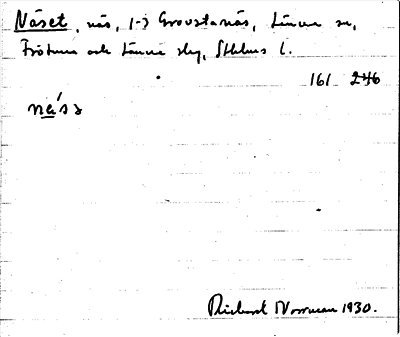 Näset, näs, (-) Grovstanäs, Länna sn,
Frötuna och Länna skg, Sthlms l.
161 246
nä́sɜ
Rickard Norrman 1930.